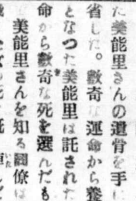 た美能里さんの遺骨を手に
省した。數奇な運命から養
となつた美能里は託された
命から數奇な死を選んだも
美能里さんを知る同僚は